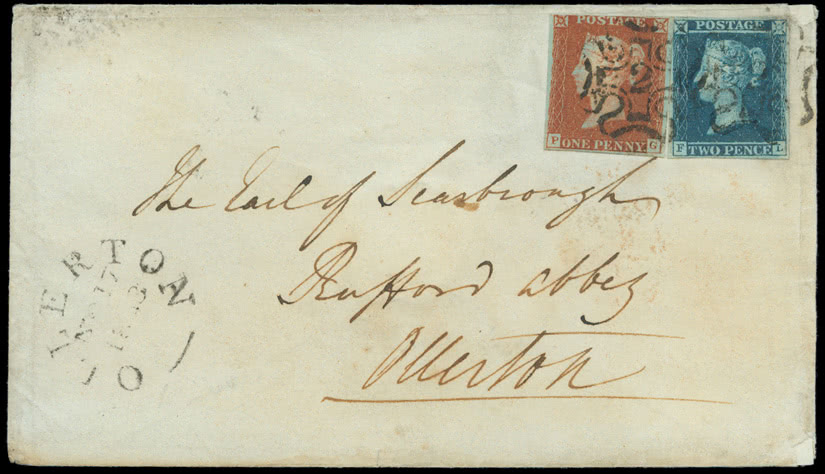 POSTAGE
P ONE PENNY G
POSTAGE
F TWO PENCE L
2
2
The Earl of Scarbrough
Rufford abbey
Ollerton
OVERTON